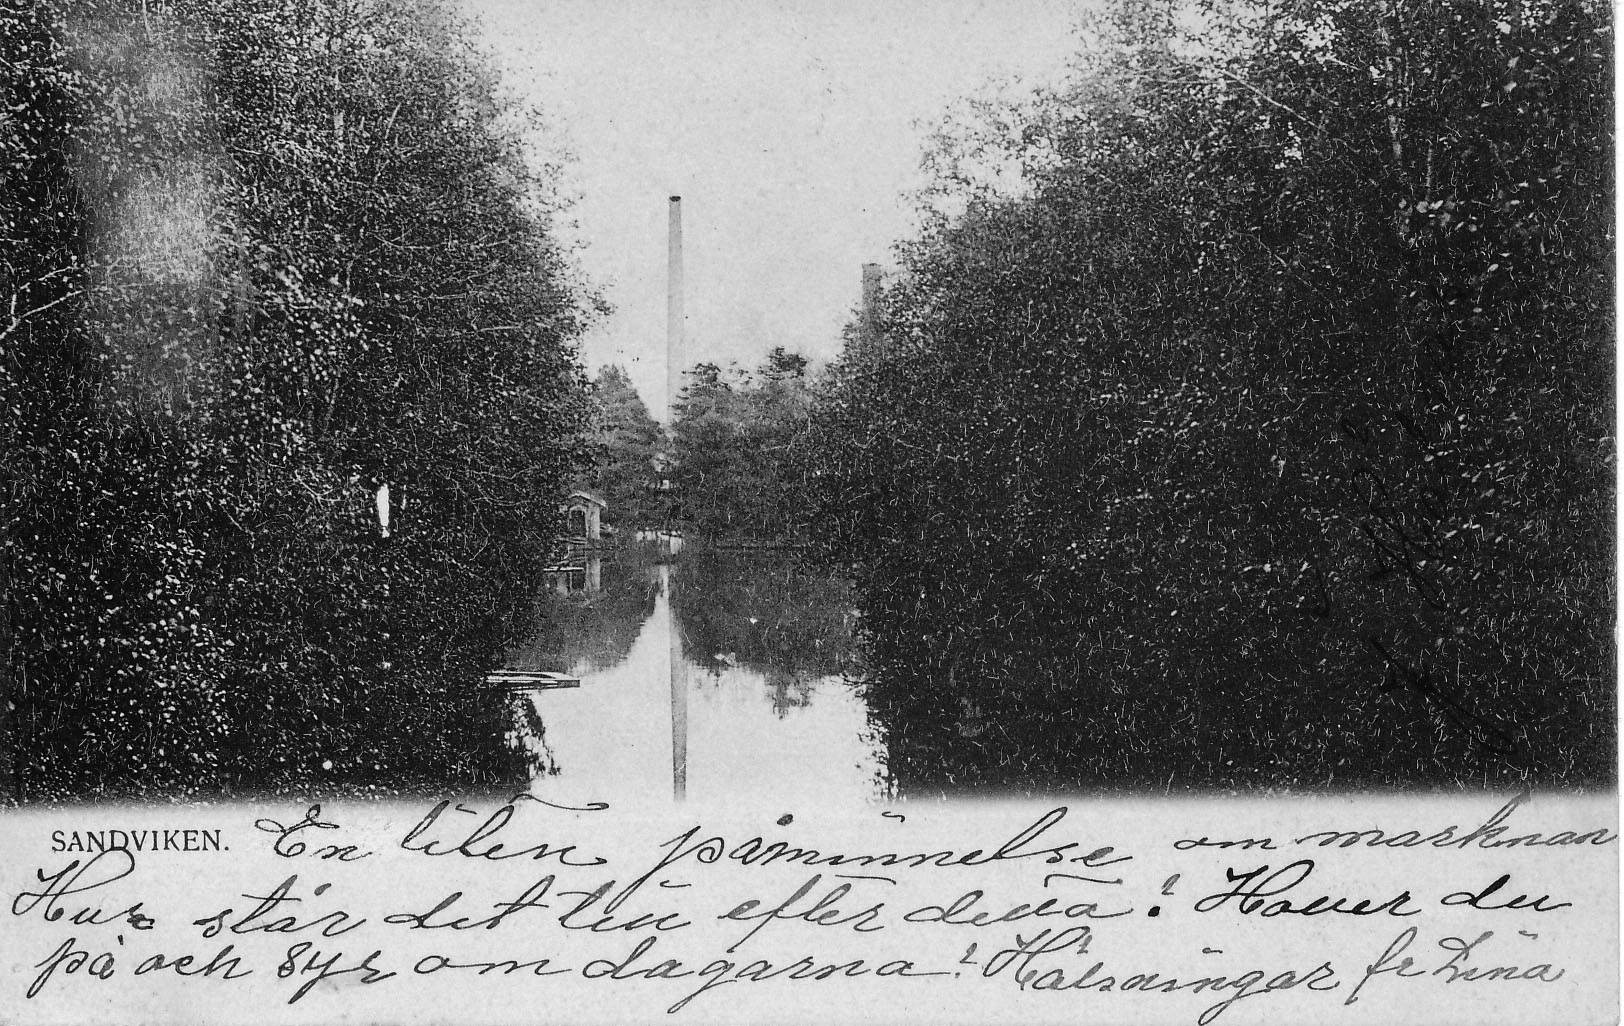 SANDVIKEN. En liten påminnelse om marknan
Hur står det till efter denna? Houer du
på och syr om dagarna? Hälsningar fr Lina